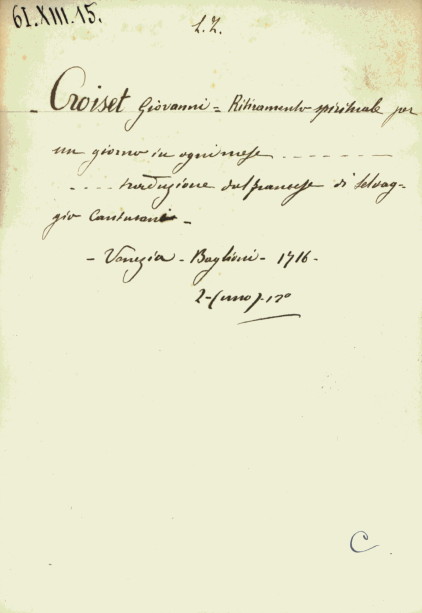 61.XIII.15.
L.Z.
- Croiset Giovanni = Ritiramento spirituale per
un giorno in ogni mese . . . . . . . .
. . . . traduzione dal francese di Selvag-
gio Canturani -
- Venezia - Baglioni - 1716 -
12º
C